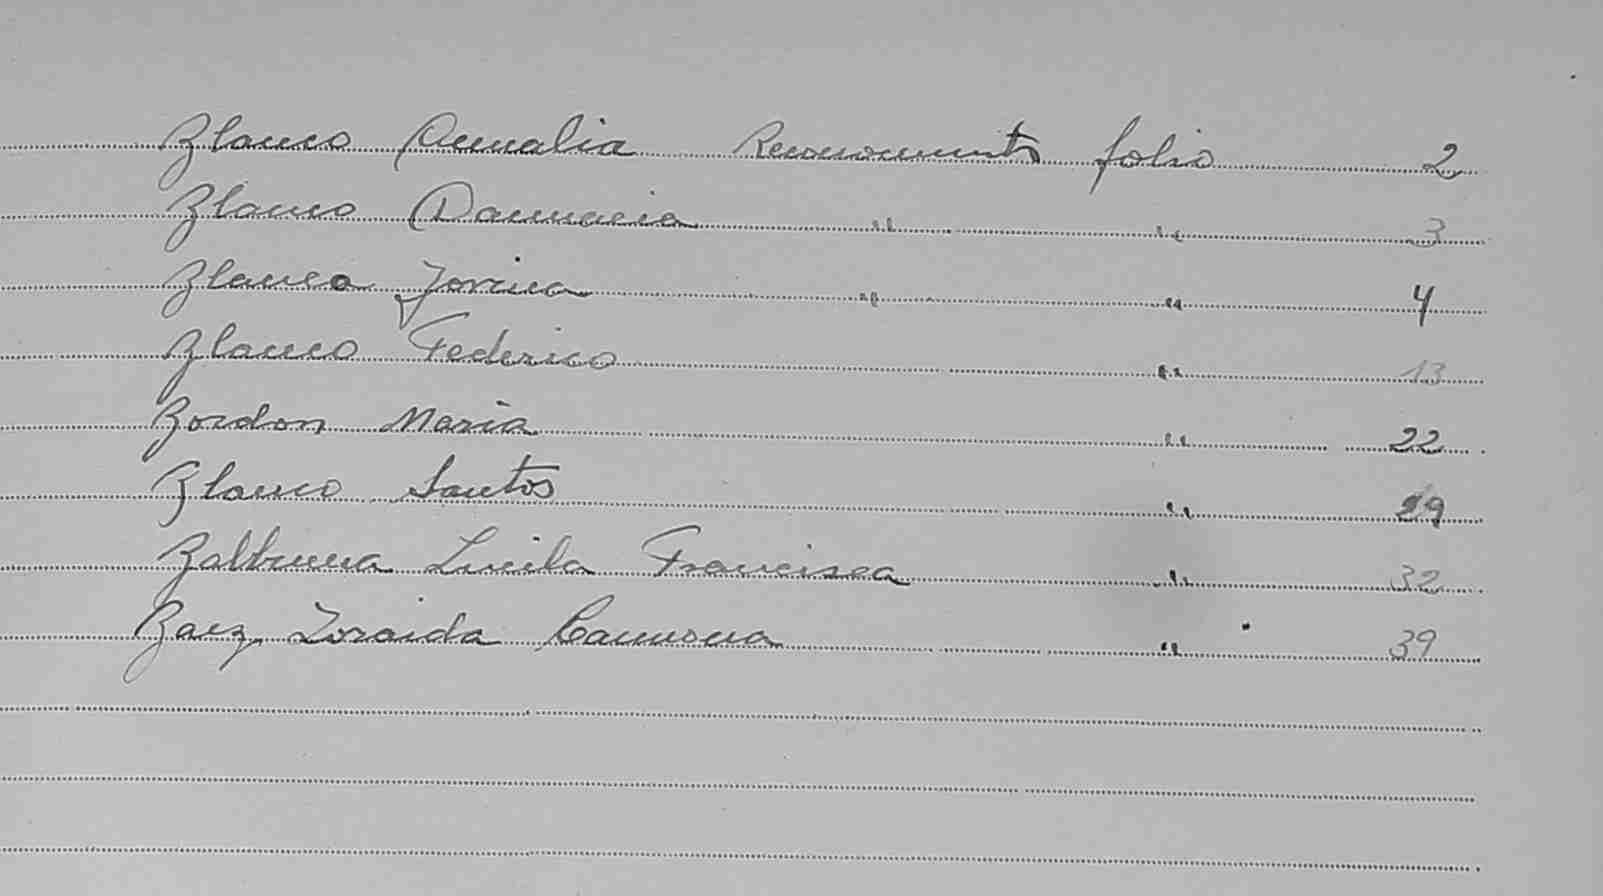 Blanco Amalia Reconocimiento folio 2
Blanco Damacia " " 3
Blanco " " 4
Blanco Federico " 13
Bordon Maria " 22
Blanco Santos " 29
Balbuena Lucila Francisca " 32
Baez Zoraida Ramona " 39